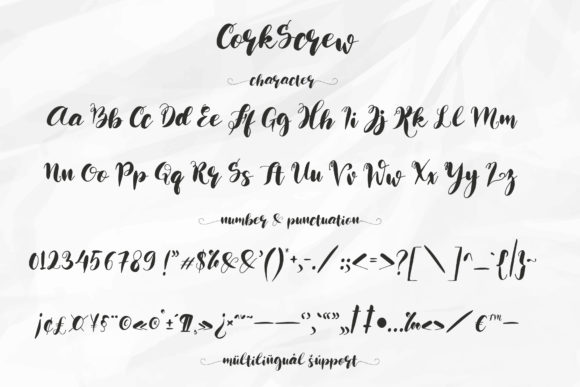 CorkScrew
character
Aa Bb Cc Dd Ee Ff Gg Hh Ii Jj Kk Ll Mm
Nn Oo Pp Qq Rr Ss Tt Uu Vv Ww Xx Yy Zz
number & punctuation
0123456789 !"#$%&&'()*+,-./:;<=>?[\]^_`{|}~
¡¢£¤¥§¨©«®°±´¶¸»¿×˜–—‘’‚“”„†‡•…‰‹›⁄€™−
multilingual support